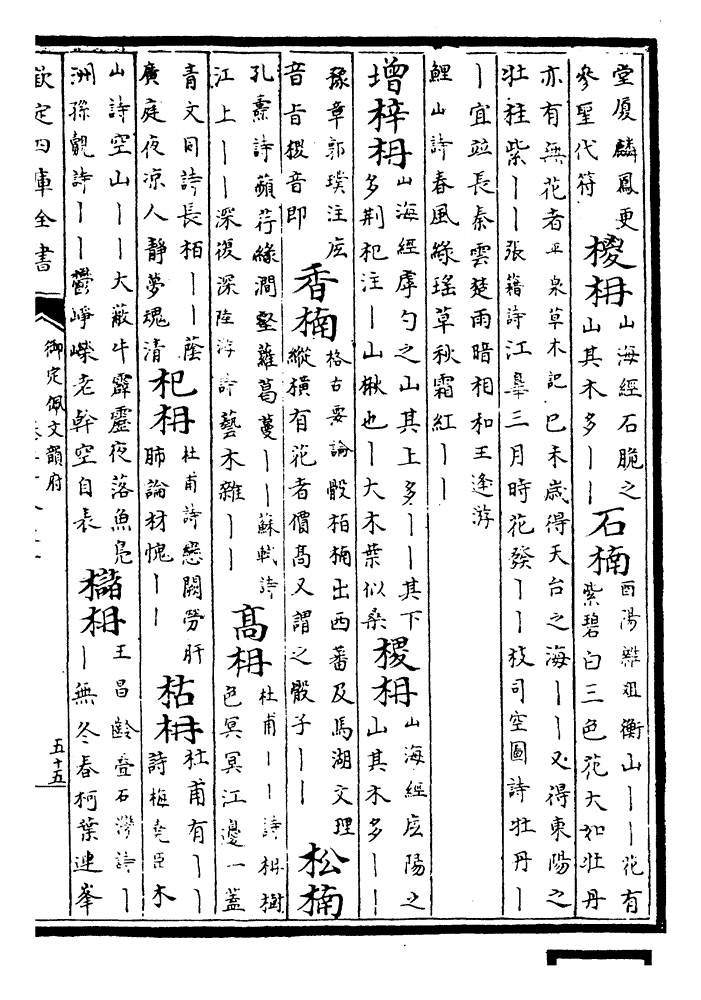 堂廈麟鳳更
參聖代符
椶枏
山海經石脆之
山其木多｜｜
石楠
酉陽雜俎衡山｜｜花有
紫碧白三色花大如牡丹
亦有無花者平泉草木記己未歲得天台之海｜｜又得東陽之
牡桂紫｜｜張籍詩江皐三月時花發｜｜枝司空圖詩牡丹｜
｜宜竝長秦雲楚雨暗相和王逢游
鯉山詩春風綠瑤草秋霜紅｜｜
增梓枏
山海經虖勺之山其上多｜｜其下
多荆杞注｜山楸也｜大木葉似桑
㮨枏
山海經底陽之
山其木多｜｜
豫章郭璞注底
音旨㮨音即
香楠
格古要論骰栢楠出西蕃及馬湖文理
縱横有花者價髙又謂之骰子｜｜
松楠
孔熹詩蘋荇緣澗壑蘿葛蔓｜｜蘇軾詩
江上｜｜深復深陸游詩藝木雜｜｜
髙枏
杜甫｜｜詩枏樹
色冥冥江邊一蓋
青文同詩長栢｜｜蔭
廣庭夜凉人靜夢魂清
杞枏
杜甫詩戀闕勞肝
肺論材愧｜｜
枯枏
杜甫有｜｜
詩梅堯臣木
山詩空山｜｜大蔽牛霹靂夜落魚凫
洲孫覿詩｜｜鬱崢嶸老幹空自表
櫧枏
王昌齡疊石灣詩｜
｜無冬春柯葉連峯
欽定四庫全書
御定佩文韻府
五十五